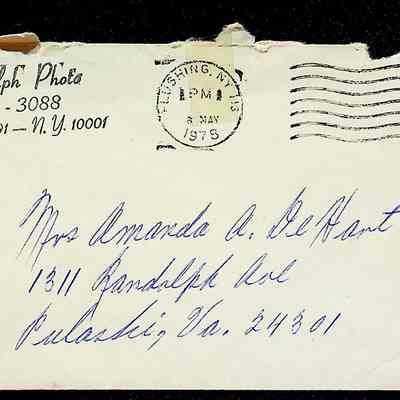 lph Photo
- 3088
91 - N.Y. 10001
FLUSHING, NY 113
PM
8 MAY
1975
Mrs Amanda A. DeHart
1311 Randolph Ave
Pulaski, Va. 24301